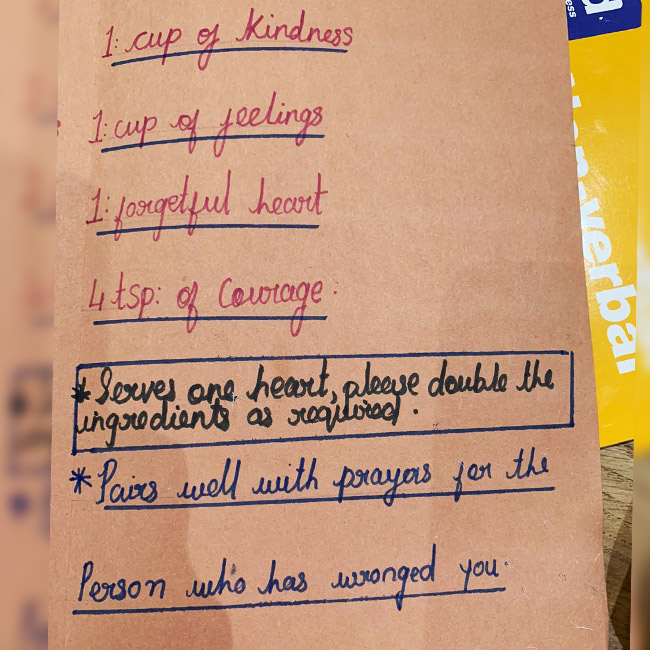 1: cup of kindness
1: cup of feelings
1: forgetful heart
4 tsp: of Courage:
* Serves one heart, please double the
ingredients as required.
* Pairs well with prayers for the
Person who has wronged you.
verbal